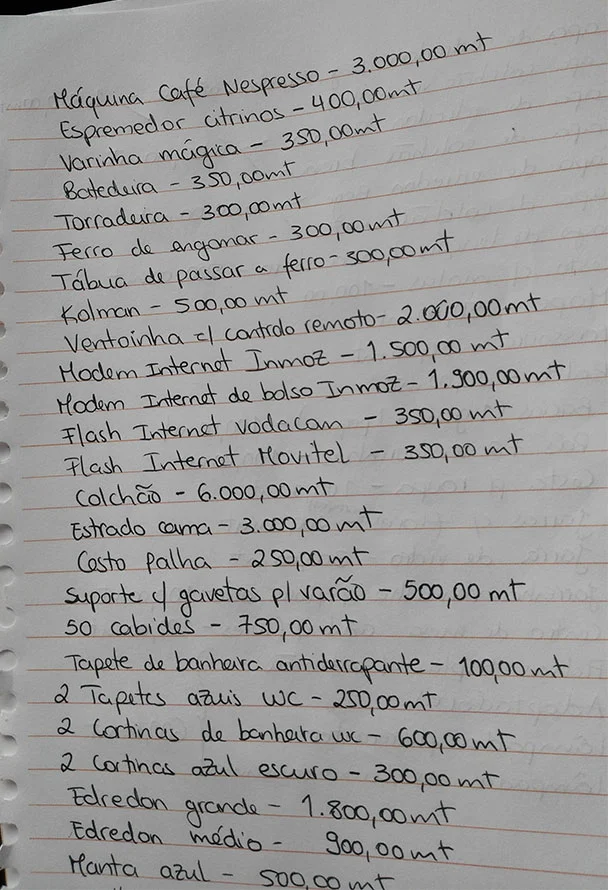 Máquina Café Nespresso - 3.000,00 mt
Espremedor citrinos - 400,00mt
Varinha mágica - 350,00mt
Batedeira - 350,00mt
Torradeira - 300,00mt
Ferro de engomar - 300,00mt
Tábua de passar a ferro - 300,00mt
Kolman - 500,00 mt
Ventoinha c/ controlo remoto - 2.000,00mt
Modem Internet Inmoz - 1.500,00 mt
Modem Internet de bolso Inmoz - 1.900,00mt
Flash Internet Vodacom - 350,00 mt
Flash Internet Movitel - 350,00 mt
Colchão - 6.000,00mt
Estrado cama - 3.000,00mt
Cesto Palha - 250,00mt
Suporte c/ gavetas p/ varão - 500,00 mt
50 cabides - 750,00mt
Tapete de banheira antiderrapante - 100,00mt
2 Tapetes azuis WC - 250,00mt
2 Cortinas de banheira wc - 600,00mt
2 Cortinas azul escuro - 300,00mt
Edredon grande - 1.800,00mt
Edredon médio - 900,00mt
Manta azul - 500,00 mt